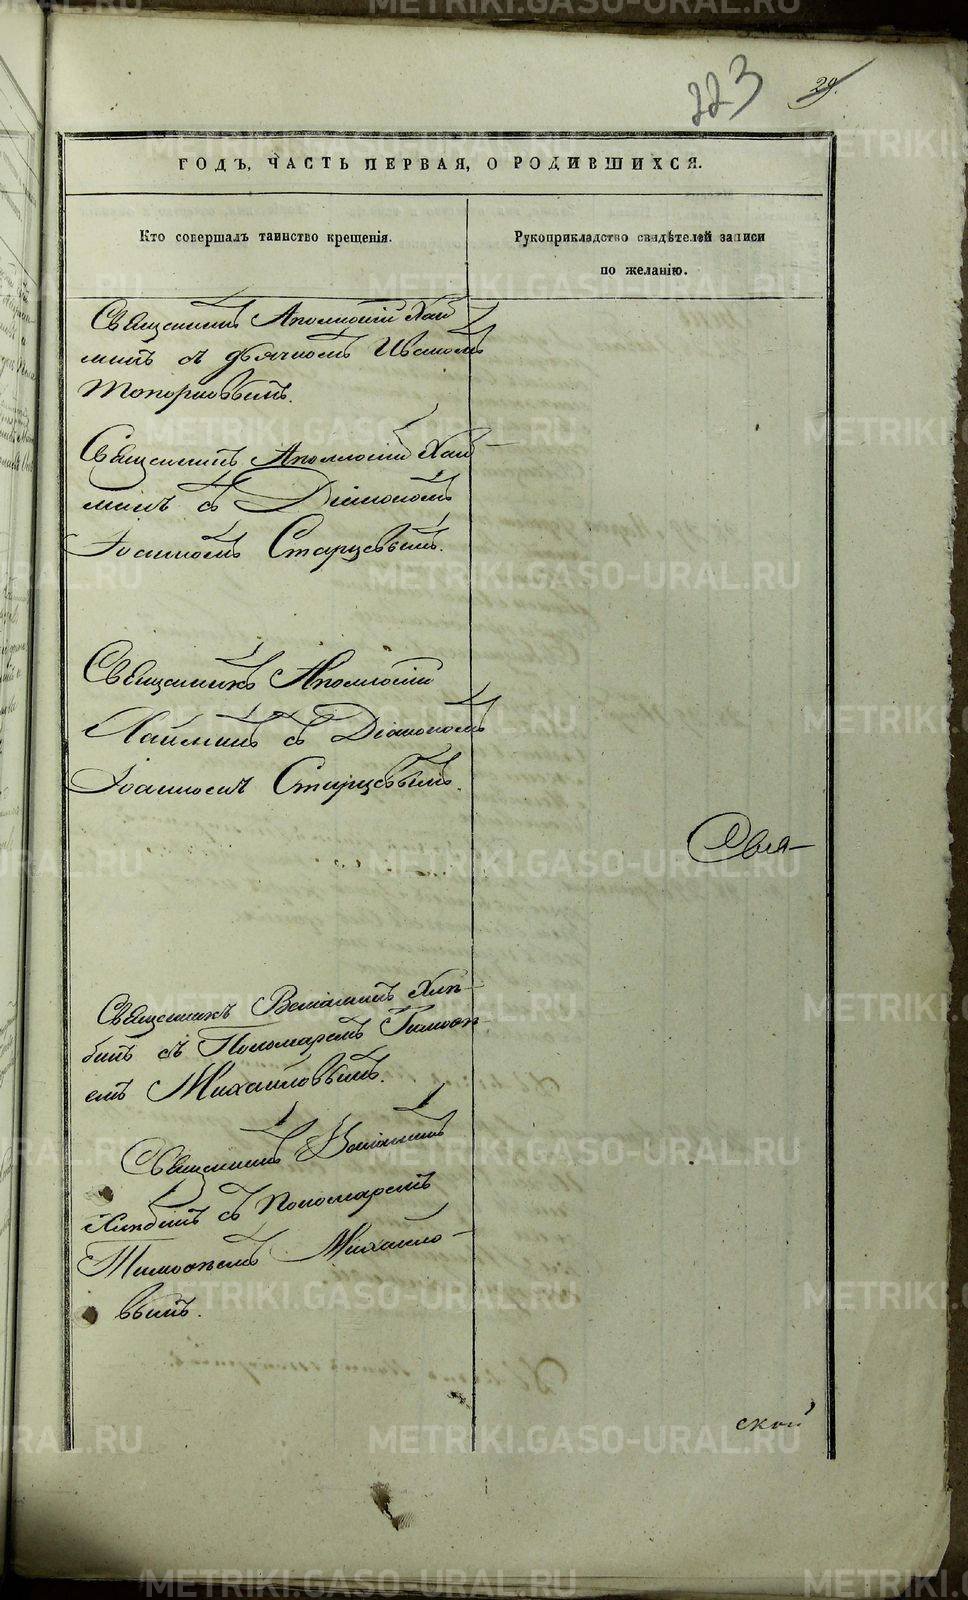 223
29.
ГОДЪ, ЧАСТЬ ПЕРВАЯ, О РОДИВШИХСЯ.
Кто совершалъ таинство крещенія.
Рукоприкладство свидѣтелей записи
по желанію.
Священникъ Аполлоній Хай
минъ съ дьячкомъ Иваномъ
Топорковымъ.
Священникъ Аполлоній Хай
минъ съ Діакономъ
Іоанномъ Старцевымъ.
Священникъ Аполлоній
Хайминъ съ Діакономъ
Іоанномъ Старцевымъ.
Свя-
Священникъ Веніаминъ Хлѣ-
бинъ съ Пономаремъ Тимоѳе-
емъ Михайловымъ.
Священникъ Веніаминъ
Хлѣбинъ съ Пономаремъ
Тимоѳеемъ Михайло-
вымъ.
ской
METRIKI.GASO-URAL.RU